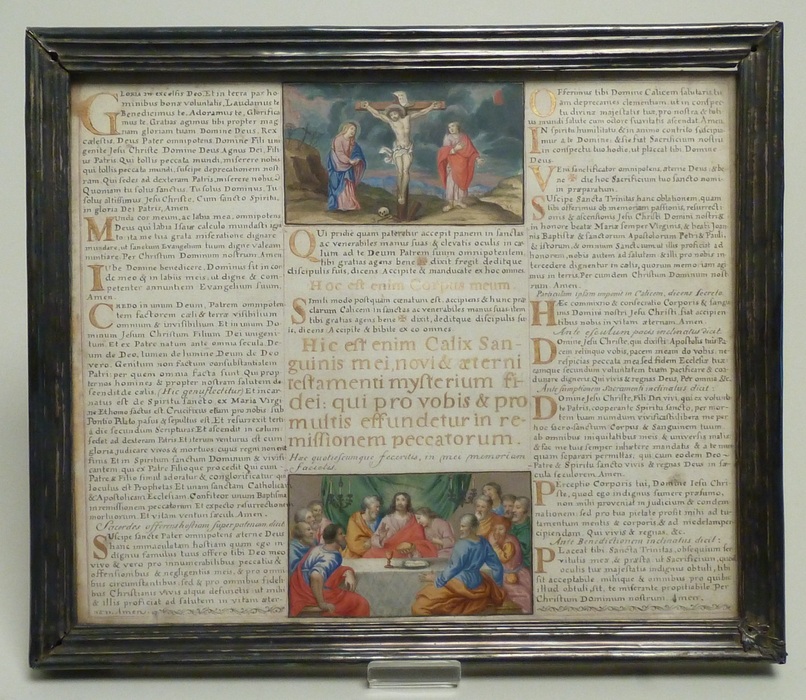 Gloria in excelsis Deo, Et in terra pax ho-
minibus bonæ voluntatis, Laudamus te
Benedicimus te, Adoramus te, Glorifica
mus te. Gratias agimus tibi propter mag
nam gloriam tuam Domine Deus, Rex
cælestis, Deus Pater omnipotens Domine Fili uni
genite Jesu Christe Domine Deus Agnus Dei, Fili
us Patris Qui tollis peccata mundi, miserere nobis
qui tollis peccata mundi, suscipe deprecationem nost
ram. Qui sedes ad dexteram Patris, miserere nobis
Quoniam tu solus sanctus. Tu solus Dominus, Tu
solus altissimus Jesu Christe, Cum sancto Spiritu,
in gloria Dei Patris, Amen
Munda cor meum, ac labia mea, omnipotens
Deus qui labia Isaiæ calculo mundasti
ita me tua grata miseratione dignare
mundare, ut sanctum Evangelium tuum digne valeam
nuntiare. Per Christum Dominum nostrum Amen
Jube Domine benedicere, Dominus sit in cor
de meo & in labiis meis, ut digne & com
petenter annuntiem Evangelium suum,
Amen.
Credo in unum Deum, Patrem omnipoten
tem factorem cæli & terræ visibilium
omnium & invisibilium Et in unum Do
minum Jesum Christum Filium Dei unigeni
tum. Et ex Patre natum ante omnia secula. De
um de Deo, lumen de lumine Deum de Deo
vero. Genitum non factum consubstantialem
Patri: per quem omnia facta sunt Qui prop
ter nos homines & propter nostram salutem de
scendit de cælis. (Hic genuflectitur) Et incar
natus est de Spiritu Sancto ex Maria Virgi
ne Et homo factus est Crucifixus etiam pro nobis sub
Pontio Pilato passus & sepultus est, Et resurrexit terti
a die secundum Scripturas Et ascendit in cælum
sedet ad dexteram Patris Et iterum venturus est cum
gloria judicare vivos & mortuos: cujus regni non erit
finis Et in Spiritum sanctum Dominum & vivifi
cantem qui ex Patre Filioque procedit Qui cum
Patre & Filio simul adoratur & conglorificatur qui
locutus est Prophetas Et unam sanctam Catholicam
& Apostolicam Ecclesiam. Confiteor unum Baptisma
in remissionem peccatorum Et expecto resurrectionem
mortuorum, Et vitam venturi sæculi. Amen.
Sacerdos offerens hostiam super patenam dicit
Suscipe sancte Pater omnipotens æterne Deus
hanc immaculatam hostiam quam ego in
dignus famulus tuus offero tibi Deo meo
vivo & vero pro innumerabilibus peccatis &
offensionibus & negligentiis meis, & pro omni
bus circumstantibus: sed & pro omnibus fideli
bus Christianis vivis atque defunctis ut mihi
& illis proficiat ad salutem in vitam æter
Amen
Qui pridie quam pateretur accepit panem in sanctas
ac venerabiles manus suas & elevatis oculis in cæ
lum ad te Deum Patrem suum omnipotentem
tibi gratias agens bene ✠ dixit fregit deditque
discipulis suis, dicens Accipite & manducate ex hoc omnes
Hoc est enim Corpus meum.
Simili modo postquam cœnatum est, accipiens & hunc præ
clarum Calicem in sanctas ac venerabiles manus suas item
tibi gratias agens bene ✠ dixit, deditque discipulis su
is, dicens Accipite & bibite ex eo omnes
Hic est enim Calix San-
guinis mei, novi & æterni
testamenti mysterium fi-
dei: qui pro vobis & pro
multis effundetur in re-
missionem peccatorum.
Hæc quotiescumque feceritis, in mei memoriam
facietis.
Offerimus tibi Domine Calicem salutaris tu
am deprecantes clementiam, ut in conspec-
tu divinæ majestatis tuæ, pro nostra & toti
us mundi salute cum odore suavitatis ascendat. Amen.
In spiritu humilitatis & in animo contrito suscipi-
amur a te Domine: & sic fiat Sacrificium nostru
in conspectu tuo hodie, ut placeat tibi Domine
Deus.
Veni sanctificator omnipotens, æterne Deus: & be
ne ✠ dic hoc Sacrificium tuo sancto nomi-
ni præparatum.
Suscipe Sancta Trinitas hanc oblationem, quam
tibi offerimus ob memoriam passionis, resurrecti
onis & ascensionis Jesu Christi Domini nostri: &
in honore beatæ Mariæ semper Virginis, & beati Joan
nis Baptistæ & sanctorum Apostolorum Petri & Pauli,
& istorum, & omnium Sanctorum: ut illis proficiat ad
honorem, nobis autem ad salutem: & illi pro nobis in
tercedere dignentur in cælis, quorum memoriam agi
mus in terris Per eundem Christum Dominum nost
rum. Amen.
Hæc commixtio & consecratio Corporis & Sangu
inis Domini nostri Jesu Christi fiat accipien
tibus nobis in vitam æternam. Amen.
Domine Jesu Christe, qui dixisti Apostolis tuis Pa
cem relinquo vobis, pacem meam do vobis: ne
respicias peccata mea sed fidem Ecclesiæ tuæ:
eamque secundum voluntatem tuam pacificare & coa
dunare digneris: Qui vivis & regnas Deus, Per omnia &c.
Domine Jesu Christe, Fili Dei vivi, qui ex volunta
te Patris, cooperante Spiritu sancto, per mor-
tem tuam mundum vivificasti: libera me per
hoc sacro-sanctum Corpus & Sanguinem tuum
ab omnibus iniquitatibus meis, & universis malis
& fac me semper inhærere mandatis & a te nun
quam separari permittas: qui cum eodem Deo
Patre & Spiritu sancto vivis & regnas Deus in sæ
cula sæculorum Amen.
Perceptio Corporis tui, Domine Jesu Chri
ste, quod ego indignus sumere præsumo,
non mihi proveniat in judicium & condem
nationem: sed pro tua pietate prosit mihi ad tu
tamentum mentis & corporis & ad medelam per
cipiendam. Qui vivis & regnas, &c.
Ante Benedictionem inclinatus dicit:
Placeat tibi Sancta Trinitas, obsequium ser
vitutis meæ & præsta ut Sacrificium, quod
oculis tuæ majestatis indignus obtuli, tibi
sit acceptabile, mihique & omnibus pro quibus
illud obtuli, sit, te miserante propitiabile. Per
Christum Dominum nostrum. Amen.